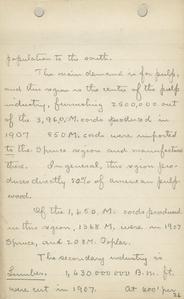 population to the south.
The main demand is for pulp,
and this region is the centre of the pulp
industry, furnishing 2800,000 out
of the 3,960,M. cords produced in
1907. 850 M. cords were imported
to the Spruce region and manufactured
there. In general, this region pro-
duces directly 50% of american pulp
wood.
Of the 1,650 M. cords produced
in this region, 1368 M, were in 1907
Spruce, and 208 M. Poplar.
The secondary industry is
Lumber. 1,430,000,000 B.M. ft.
were cut in 1907. At 600' per